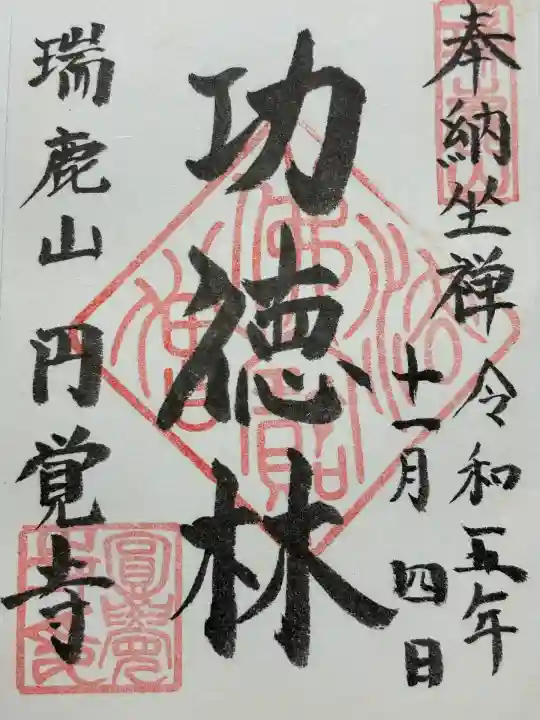 奉納坐禅 令和五年
十一月 四日
功徳林
瑞鹿山 円覚寺